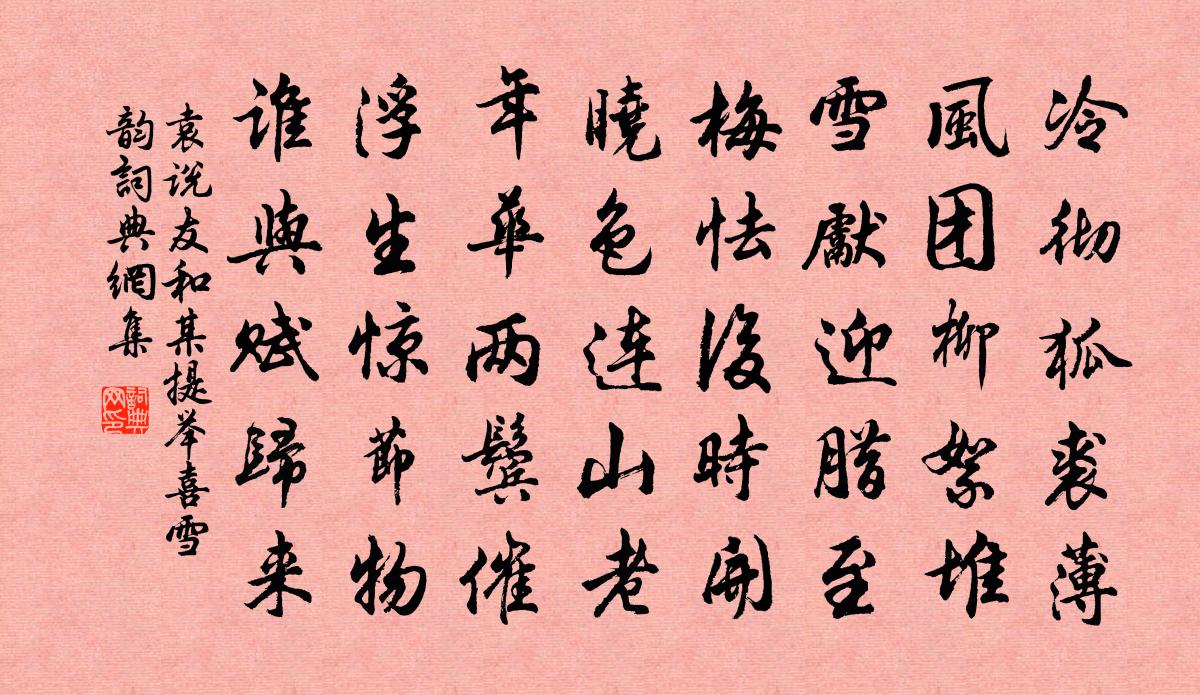 冷彻狐裘薄
風团柳絮堆
雪獻迎腊至
梅怯後時開
曉色连山老
年華两鬓催
浮生惊節物
谁與赋歸来
袁说友和某提举喜雪
韵詞典網集
詞典
网印